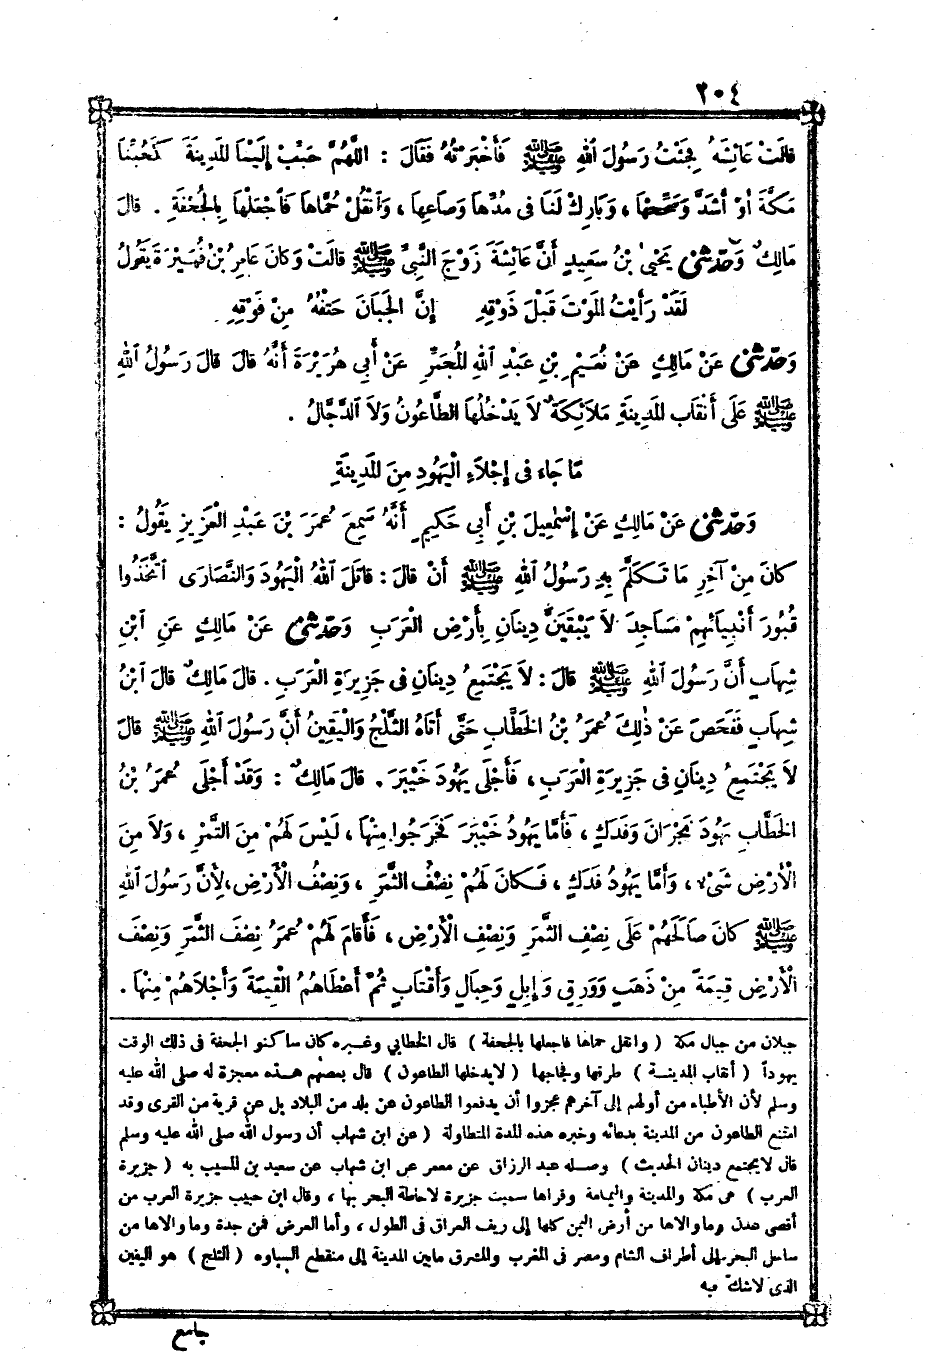 ٢٠٤
قَالَتْ عَائِشَةُ فَجِئْتُ رَسُولَ اللهِ ﷺ فَأَخْبَرْتُهُ فَقَالَ : اللَّهُمَّ حَبِّبْ إِلَيْنَا الْمَدِينَةَ كَحُبِّنَا
مَكَّةَ أَوْ أَشَدَّ وَصَحِّحْهَا ، وَبَارِكْ لَنَا فِى مُدِّهَا وَصَاعِهَا ، وَانْقُلْ حُمَّاهَا فَاجْعَلْهَا بِالْجُحْفَةِ . قَالَ
مَالِكٌ وَحَدَّثَنِى يَحْيَى بْنُ سَعِيدٍ أَنَّ عَائِشَةَ زَوْجَ النَّبِىِّ ﷺ قَالَتْ وَكَانَ عَامِرُ بْنُ فُهَيْرَةَ يَقُولُ
لَقَدْ رَأَيْتُ الْمَوْتَ قَبْلَ ذَوْقِهِ إِنَّ الْجَبَانَ حَتْفُهُ مِنْ فَوْقِهِ
وَحَدَّثَنِى عَنْ مَالِكٍ عَنْ نُعَيْمِ بْنِ عَبْدِ اللهِ الْمُجَمِّرِ عَنْ أَبِى هُرَيْرَةَ أَنَّهُ قَالَ قَالَ رَسُولُ اللهِ
ﷺ عَلَى أَنْقَابِ الْمَدِينَةِ مَلَائِكَةٌ لَا يَدْخُلُهَا الطَّاعُونُ وَلَا الدَّجَّالُ .
مَا جَاءَ فِى إِجْلَاءِ الْيَهُودِ مِنَ الْمَدِينَةِ
وَحَدَّثَنِى عَنْ مَالِكٍ عَنْ إِسْمٰعِيلَ بْنِ أَبِى حَكِيمٍ أَنَّهُ سَمِعَ عُمَرَ بْنَ عَبْدِ الْعَزِيزِ يَقُولُ :
كَانَ مِنْ آخِرِ مَا تَكَلَّمَ بِهِ رَسُولُ اللهِ ﷺ أَنْ قَالَ : قَاتَلَ اللهُ الْيَهُودَ وَالنَّصَارَى اتَّخَذُوا
قُبُورَ أَنْبِيَائِهِمْ مَسَاجِدَ لَا يَبْقَيَنَّ دِينَانِ بِأَرْضِ الْعَرَبِ وَحَدَّثَنِى عَنْ مَالِكٍ عَنِ ابْنِ
شِهَابٍ أَنَّ رَسُولَ اللهِ ﷺ قَالَ : لَا يَجْتَمِعُ دِينَانِ فِى جَزِيرَةِ الْعَرَبِ . قَالَ مَالِكٌ قَالَ ابْنُ
شِهَابٍ فَفَحَصَ عَنْ ذٰلِكَ عُمَرُ بْنُ الْخَطَّابِ حَتَّى أَتَاهُ الثَّلْجُ وَالْيَقِينُ أَنَّ رَسُولَ اللهِ ﷺ قَالَ
لَا يَجْتَمِعُ دِينَانِ فِى جَزِيرَةِ الْعَرَبِ ، فَأَجْلَى يَهُودَ خَيْبَرَ . قَالَ مَالِكٌ : وَقَدْ أَجْلَى عُمَرُ بْنُ
الْخَطَّابِ يَهُودَ نَجْرَانَ وَفَدَكَ ، فَأَمَّا يَهُودُ خَيْبَرَ فَخَرَجُوا مِنْهَا ، لَيْسَ لَهُمْ مِنَ الثَّمَرِ ، وَلَا مِنَ
الْأَرْضِ شَىْءٌ ، وَأَمَّا يَهُودُ فَدَكَ ، فَكَانَ لَهُمْ نِصْفُ الثَّمَرِ ، وَنِصْفُ الْأَرْضِ ، لِأَنَّ رَسُولَ اللهِ
ﷺ كَانَ صَالَحَهُمْ عَلَى نِصْفِ الثَّمَرِ وَنِصْفِ الْأَرْضِ ، فَأَقَامَ لَهُمْ عُمَرُ نِصْفَ الثَّمَرِ وَنِصْفَ
الْأَرْضِ قِيمَةً مِنْ ذَهَبٍ وَوَرِقٍ وَإِبِلٍ وَحِبَالٍ وَأَقْتَابٍ ثُمَّ أَعْطَاهُمُ الْقِيمَةَ وَأَجْلَاهُمْ مِنْهَا .
جبلان من جبال مكة ( وانقل حماها فاجعلها بالجحفة ) قال الخطابي وغيره كان ساكنو الجحفة فى ذلك الوقت
يهوداً ( أنقاب المدينة ) طرقها وفجاجها ( لايدخلها الطاعون ) قال بعضهم هذه معجزة له صلى الله عليه
وسلم لأن الأطباء من أولهم إلى آخرهم عجزوا أن يدفعوا الطاعون عن بلد من البلاد بل عن قرية من القرى وقد
امتنع الطاعون من المدينة بدعائه وخبره هذه المدة المتطاولة ( عن ابن شهاب أن رسول الله صلى الله عليه وسلم
قال لايجتمع دينان الحديث ) وصله عبد الرزاق عن معمر عن ابن شهاب عن سعيد بن المسيب به ( جزيرة
العرب ) هى مكة والمدينة واليمامة وقراها سميت جزيرة لاحاطة البحر بها ، وقال ابن حبيب جزيرة العرب من
أقصى عدن وما والاها من أرض اليمن كلها إلى ريف العراق فى الطول ، وأما العرض فمن جدة وما والاها من
ساحل البحر إلى أطراف الشام ومصر فى المغرب والمشرق مابين المدينة إلى منقطع السماوه ( الثلج ) هو اليقين
الذى لاشك فيه
جامع